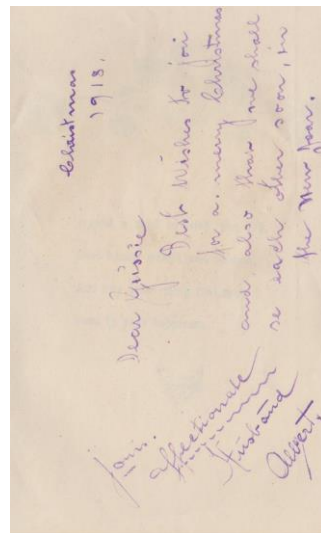 Christmas
1918.
Dear Gussie
Best Wishes to joi
for a. merry Christmas
and also that we shall
se each other soon, in
the New Jear.
joris.
affectionate
Husband
Albert.